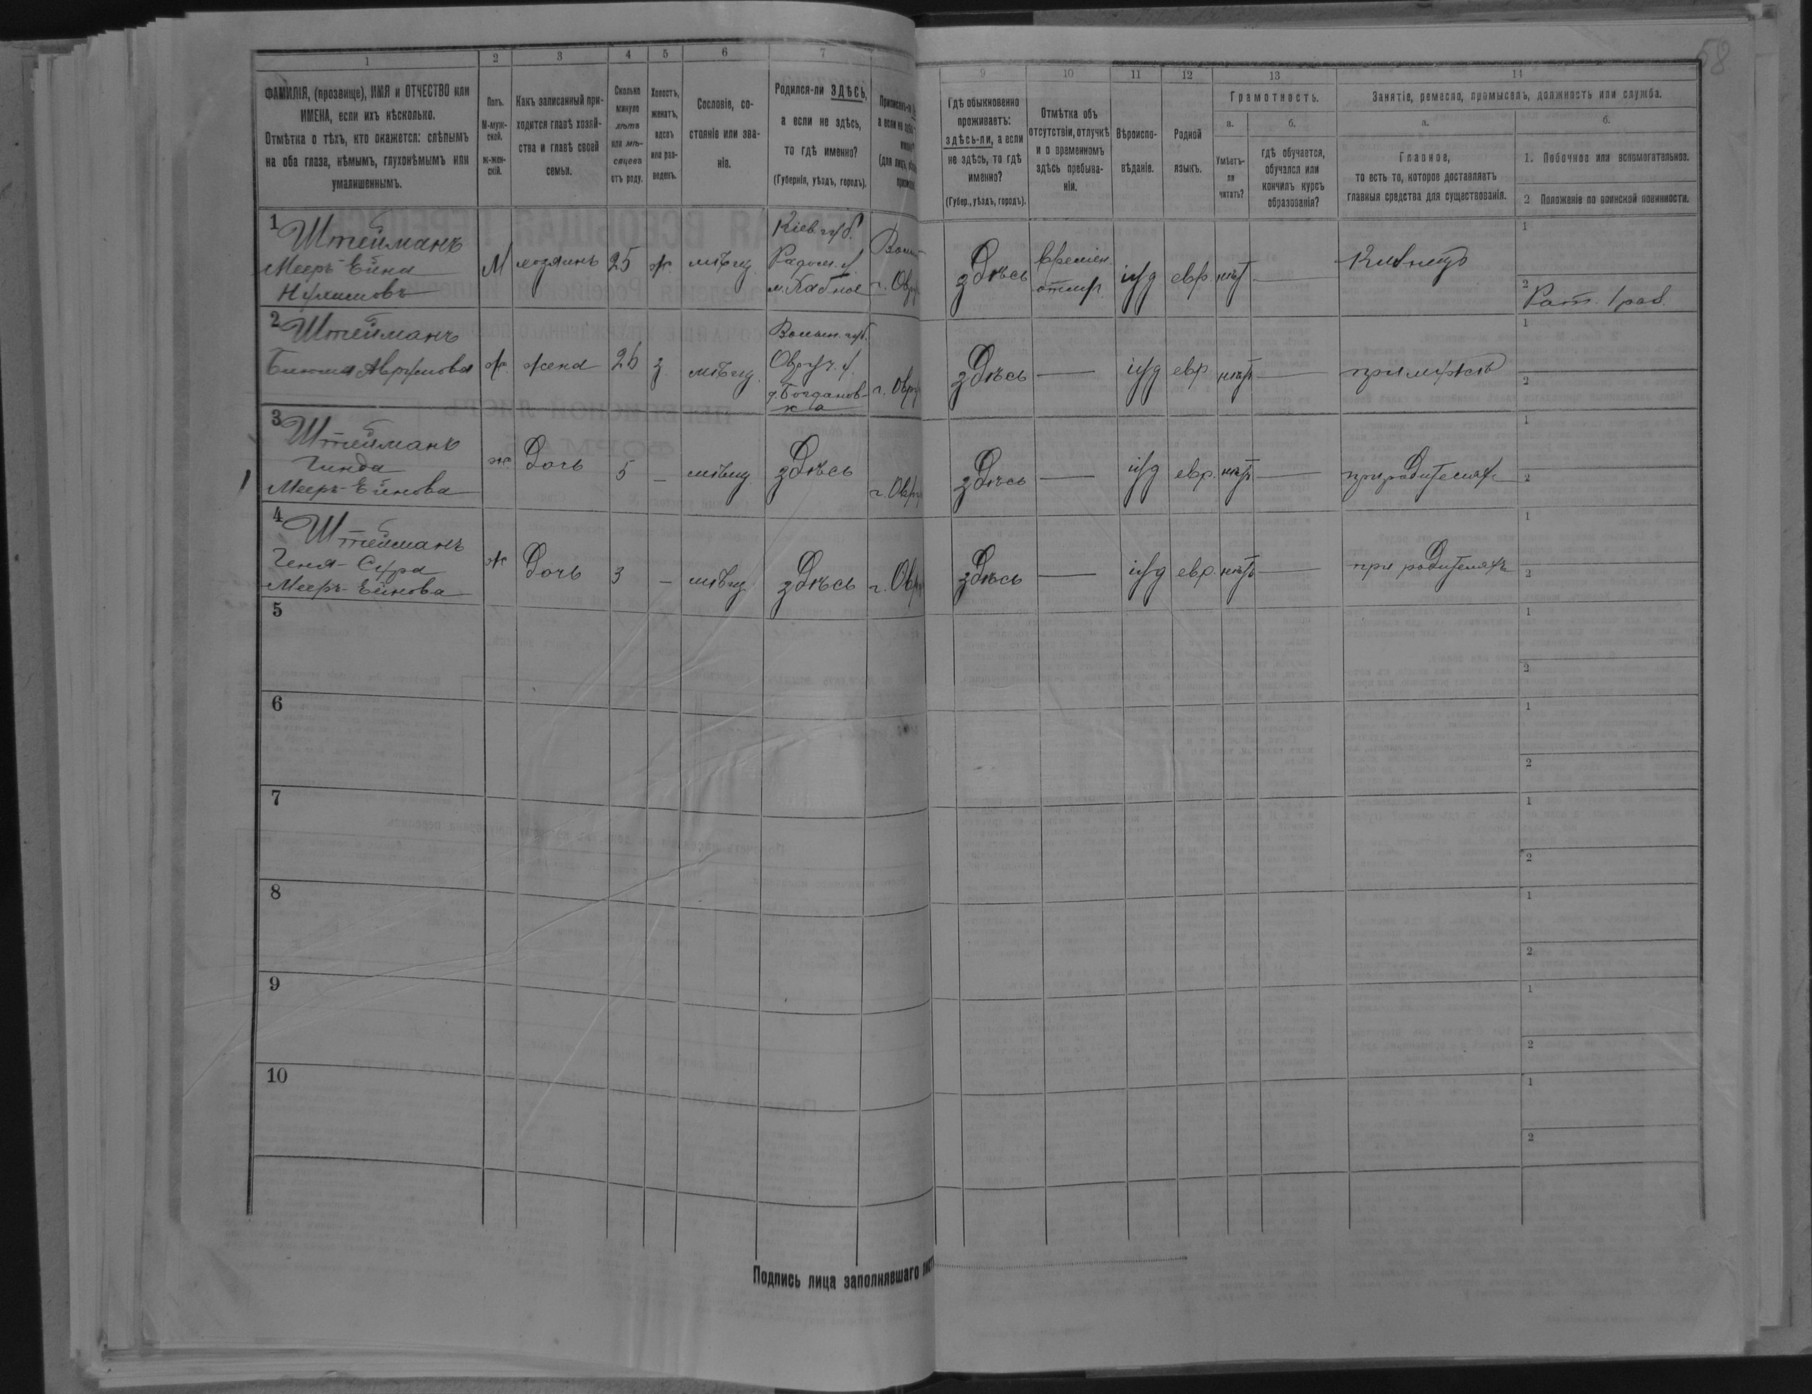 58
1 2 3 4 5 6 7 9 10 11 12 13 14
ФАМИЛІЯ, (прозвище), ИМЯ и ОТЧЕСТВО или
ИМЕНА, если ихъ нѣсколько.
Отмѣтка о тѣхъ, кто окажется: слѣпымъ
на оба глаза, нѣмымъ, глухонѣмымъ или
умалишеннымъ.
Полъ.
М-муж-
ской.
ж-жен-
скій.
Какъ записанный при-
ходится главѣ хозяй-
ства и главѣ своей
семьи.
Сколько
минуло
лѣтъ
или мѣ-
сяцевъ
отъ роду.
Холостъ,
женатъ,
вдовъ
или раз-
веденъ.
Сословіе, со-
стояніе или зва-
ніе.
Родился-ли ЗДѢСЬ,
а если не здѣсь,
то гдѣ именно?
(Губернія, уѣздъ, городъ).
Гдѣ обыкновенно
проживаетъ:
здѣсь-ли, а если
не здѣсь, то гдѣ
именно?
(Губер., уѣздъ, городъ).
Отмѣтка объ
отсутствіи, отлучкѣ
и о временномъ
здѣсь пребыва-
ніи.
Вѣроиспо-
вѣданіе.
Родной
языкъ.
Грамотность.
а. б.
Умѣетъ-
ли
читать?
гдѣ обучается,
обучался или
кончилъ курсъ
образованія?
Занятіе, ремесло, промыселъ, должность или служба.
а. б.
Главное,
то есть то, которое доставляетъ
главныя средства для существованія.
1. Побочное или вспомогательное.
2 Положеніе по воинской повинности.
1
Штейманъ
Мееръ-Ейна
М
25
ж
мѣщ
Кіев губ.
Радом. у.
г. Овр
здѣсь
времен.
іуд
евр
нѣт
1
2
Рат. 1 раз.
2
Штейманъ
ж.
жена
26
з.
мѣщ.
Волын. губ.
Овруч. у.
д. Богданов-
ка
г. Овр
здѣсь
іуд
евр.
нѣт
при мужѣ
1
2
3
Штейманъ
Гинда
Мееръ-Ейнова
ж
дочь
5
мѣщ
здѣсь
г. Овр
здѣсь
іуд
евр.
нѣт
при родителях
1
2
4
Штейманъ
Геня-Сура
Мееръ-Ейнова
ж
дочь
3
мѣщ
здѣсь
г. Овр
здѣсь
іуд
евр.
нѣтъ
при родителяхъ
1
2
5
1
2
6
1
2
7
1
2
8
1
2
9
1
2
10
1
2
Подпись лица заполнявшаго